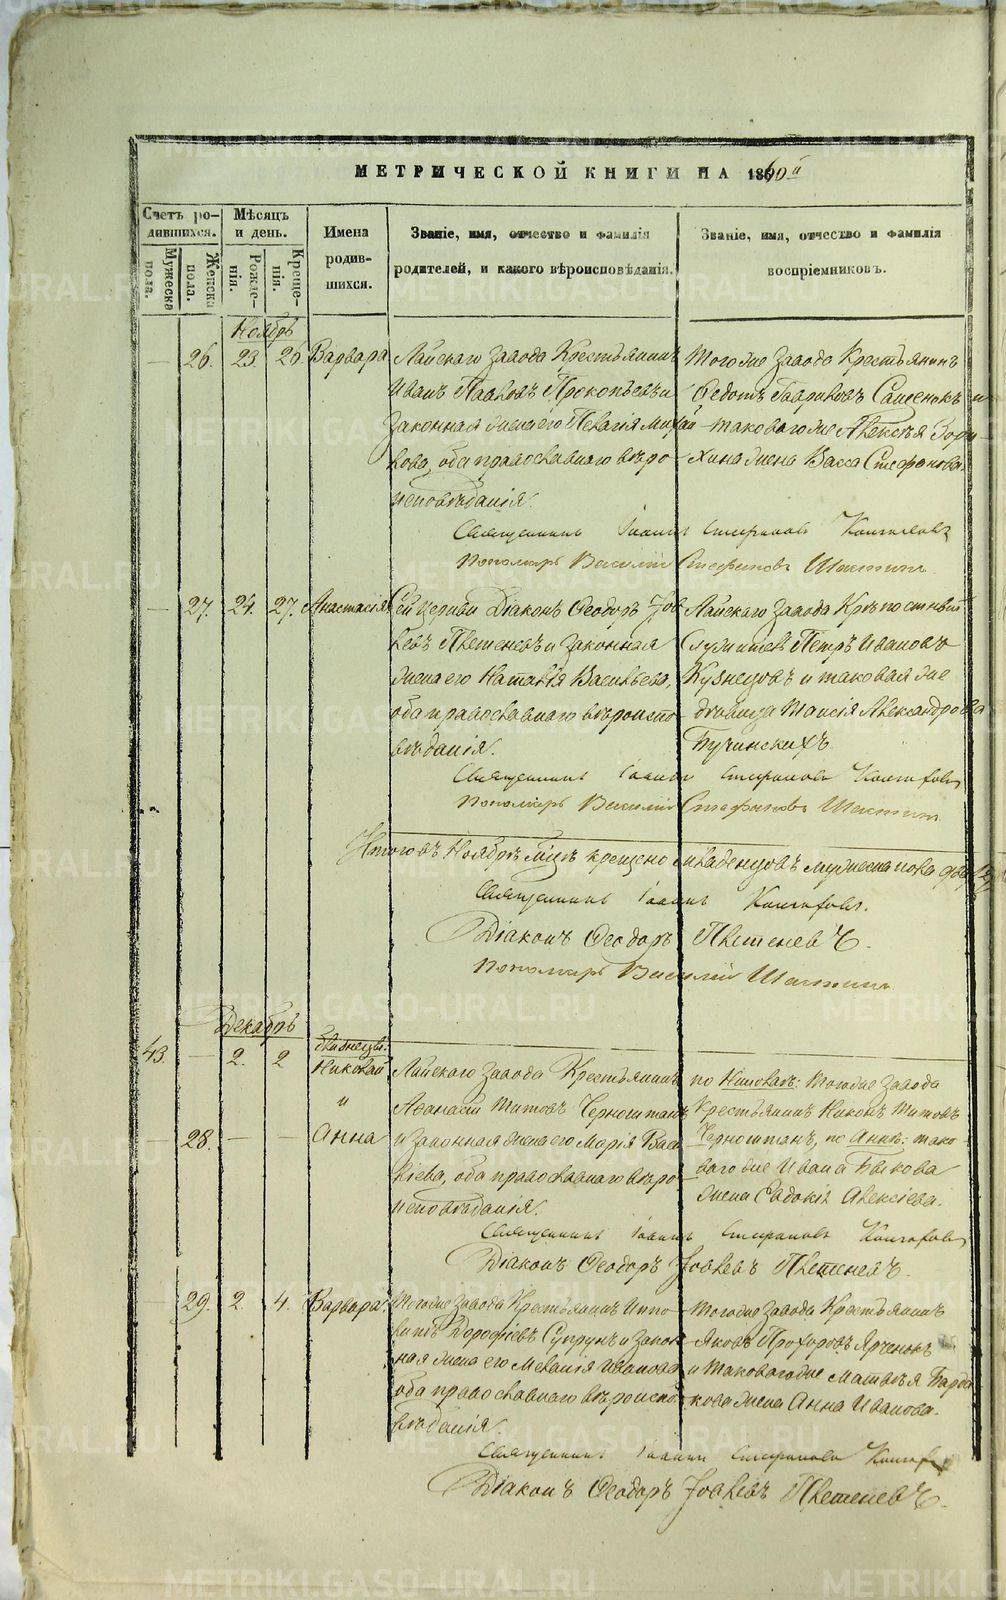 МЕТРИЧЕСКОЙ КНИГИ НА 1860й
Счетъ ро-
дившихся.
Мужеска
пола.
Женска
пола.
Мѣсяцъ
и день.
Рожде-
нія.
Креще-
нія.
Имена
родив-
шихся.
Званіе, имя, отчество и фамилія
родителей, и какого вѣроисповѣданія.
Званіе, имя, отчество и фамилія
воспріемниковъ.
Ноябрь
26. 23. 26 Варвара
Лайскаго завода Крестьянинъ
Иванъ Павловъ Прокопьевъ и
Законная жена его Пелагія Михай
лова, оба православнаго вѣро
исповѣданія.
Того же завода Крестьянинъ
Федотъ Гавриловъ Сащенокъ и
таковаго же Алексѣя Зори
хина жена Васса Стефанова.
Священникъ Іоаннъ Стефановъ
Пономарь Василій Стефановъ
27. 24. 27. Анастасія
Сей церкви Діаконъ Феодоръ Іов
левъ Плетеневъ и законная
жена его Наталія Васильева,
оба православнаго вѣроиспо
вѣданія.
Лайскаго завода Крѣпостный
Служитель Петръ Ивановъ
Кузнецовъ и таковая же
дѣвица Таисія Александрова
Бучинскихъ
Священникъ Іоаннъ Стефановъ
Пономарь Василій Стефановъ
Итого въ Ноябрѣ мѣсяцѣ крещено младенцовъ мужеска пола
Священникъ Іоаннъ
Діаконъ Феодоръ Плетеневъ.
Пономарь Василій
Декабрь
Близнецы:
43. — 2. 2 Николай
" 
28. — — Анна
Лайскаго завода Крестьянинъ
Афанасій Титовъ Черноштанъ
и Законная жена его Марія Васи
ліева, оба православнаго вѣро
исповѣданія.
по Николаѣ: тогоже завода
Крестьянинъ Никонъ Титовъ
Черноштанъ, по Аннѣ: тако-
ваго же Ивана Быкова
жена Евдокія Алексіева.
Священникъ Іоаннъ Стефановъ
Діаконъ Феодоръ Іовлевъ Плетеневъ.
29. 2. 4. Варвара
Тогоже завода Крестьянинъ Иппо
литъ Дорофѣевъ Супрунъ и закон
ная жена его Меланія Иванова
оба православнаго вѣроиспо
вѣданія.
Тогоже завода Крестьянинъ
Яковъ Прохоровъ Ярченокъ
и таковаго же Матвѣя Барда
кова жена Анна Иванова.
Священникъ Іоаннъ Стефановъ
Діаконъ Феодоръ Іовлевъ Плетеневъ.
METRIKI.GASO-URAL.RU